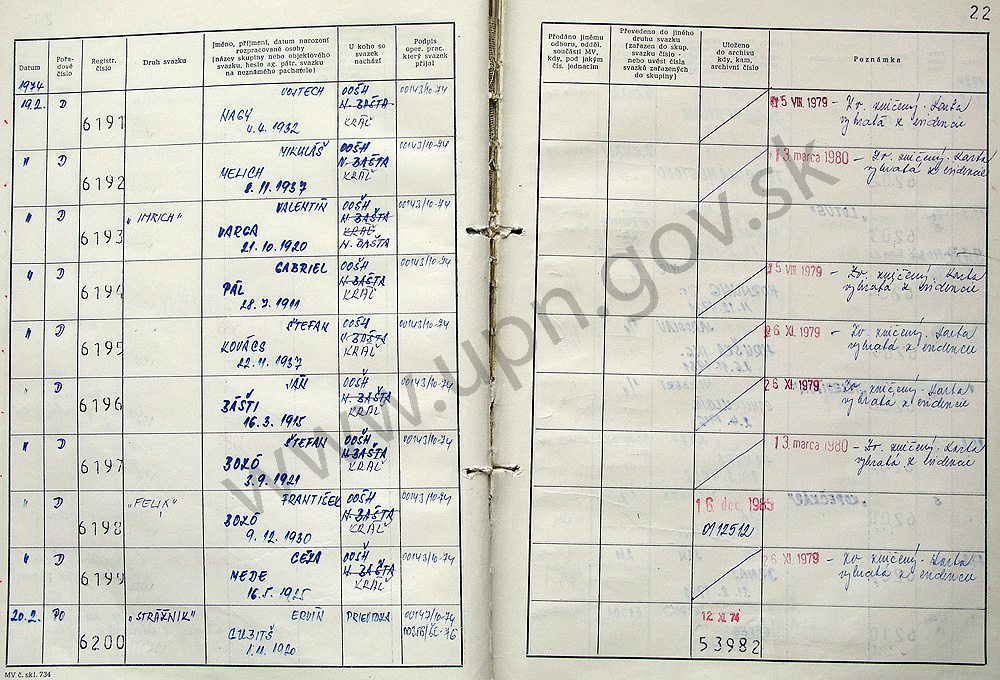 22
Datum
Pořadové číslo
Registr. číslo
Druh svazku
Jméno, příjmení, datum narození rozpracované osoby (název skupiny nebo objektového svazku, heslo ag. pátr. svazku na neznámého pachatele)
U koho se svazek nachází
Podpis oper. prac. který svazek přijal
Předáno jinému odboru, odděl. součásti MV, kdy, pod jakým čís. jednacím
Převedeno do jiného druhu svazku (zařazen do skup. svazku číslo - nebo uvést čísla svazků zařazených do skupiny)
Uloženo do archivu kdy, kam, archivní číslo
Poznámka
1974
19.2. D 6191 VOJTECH OOŠH 00143/10-74
NAGY N. BAŠTA
4.4. 1932 KRÁĽ
5 VIII 1979 - Zv. zničený. Karta
vybratá z evidencie
" D 6192 MIKULÁŠ OOŠH 00143/10-74
MELICH N. BAŠTA
8.11. 1937 KRÁĽ
13 marca 1980 - Zv. zničený. Karta
vybratá z evidencie
" D 6193 "IMRICH" VALENTÍN OOŠH 00143/10-74
VARGA N. BAŠTA
KRÁĽ
21.10. 1920 N. BAŠTA
" D 6194 GABRIEL OOŠH 00143/10-74
PÁL N. BAŠTA
1911 KRÁĽ
5 VIII 1979 - Zv. zničený. Karta
vybratá z evidencie
" D 6195 ŠTEFAN OOŠH 00143/10-74
KOVÁCS N. BAŠTA
22.11. 1937 KRÁĽ
26 XI. 1979 - Zv. zničený. Karta
vybratá z evidencie
" D 6196 JÁN OOŠH 00143/10-74
BÁŠTI N. BAŠTA
16.3. 1915 KRÁĽ
26 XI. 1979 - Zv. zničený. Karta
vybratá z evidencie
" D 6197 ŠTEFAN OOŠH 00143/10-74
BOZÓ N. BAŠTA
3.9. 1921 KRÁĽ
13 marca 1980 - Zv. zničený. Karta
vybratá z evidencie
" D 6198 "FELIX" FRANTIŠEK OOŠH 00143/10-74
BOZÓ N. BAŠTA
9.12. 1930 KRÁĽ
16 dec. 1985
0112512
" D 6199 GÉZA OOŠH 00143/10-74
MEDE N. BAŠTA
16.5. 1925 KRÁĽ
26 XI 1979 - Zv. zničený. Karta
vybratá z evidencie
20.2. PO 6200 "STRÁŽNIK" ERVÍN 00147/10-74
1.11. 1920
12 XI 74
53982
MV č. skl. 734
www.upn.gov.sk